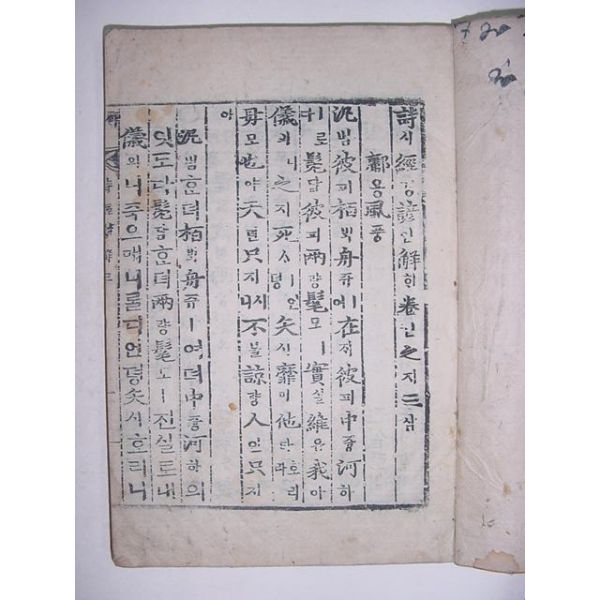 詩시經경諺언解ᄒᆡ卷권之지三삼
鄘용風풍
汎범彼피栢ᄇᆡᆨ舟쥬ㅣ여在ᄌᆡ彼피中듕河하
ㅣ로다髧담彼피兩량髦모ㅣ實실維유我아
儀의니之지死ᄉᆞㅣ언뎡矢시靡미他타호리라
母모也야天텬只지시니不블諒량人인只지
아
汎범ᄒᆞᆫ뎌栢ᄇᆡᆨ舟쥬ㅣ여뎌中듕河하의
잇도다髧담ᄒᆞᆫ뎌兩량髦모ㅣ진실로내
儀의니죽으매니를디언뎡矢시ᄒᆞ리니